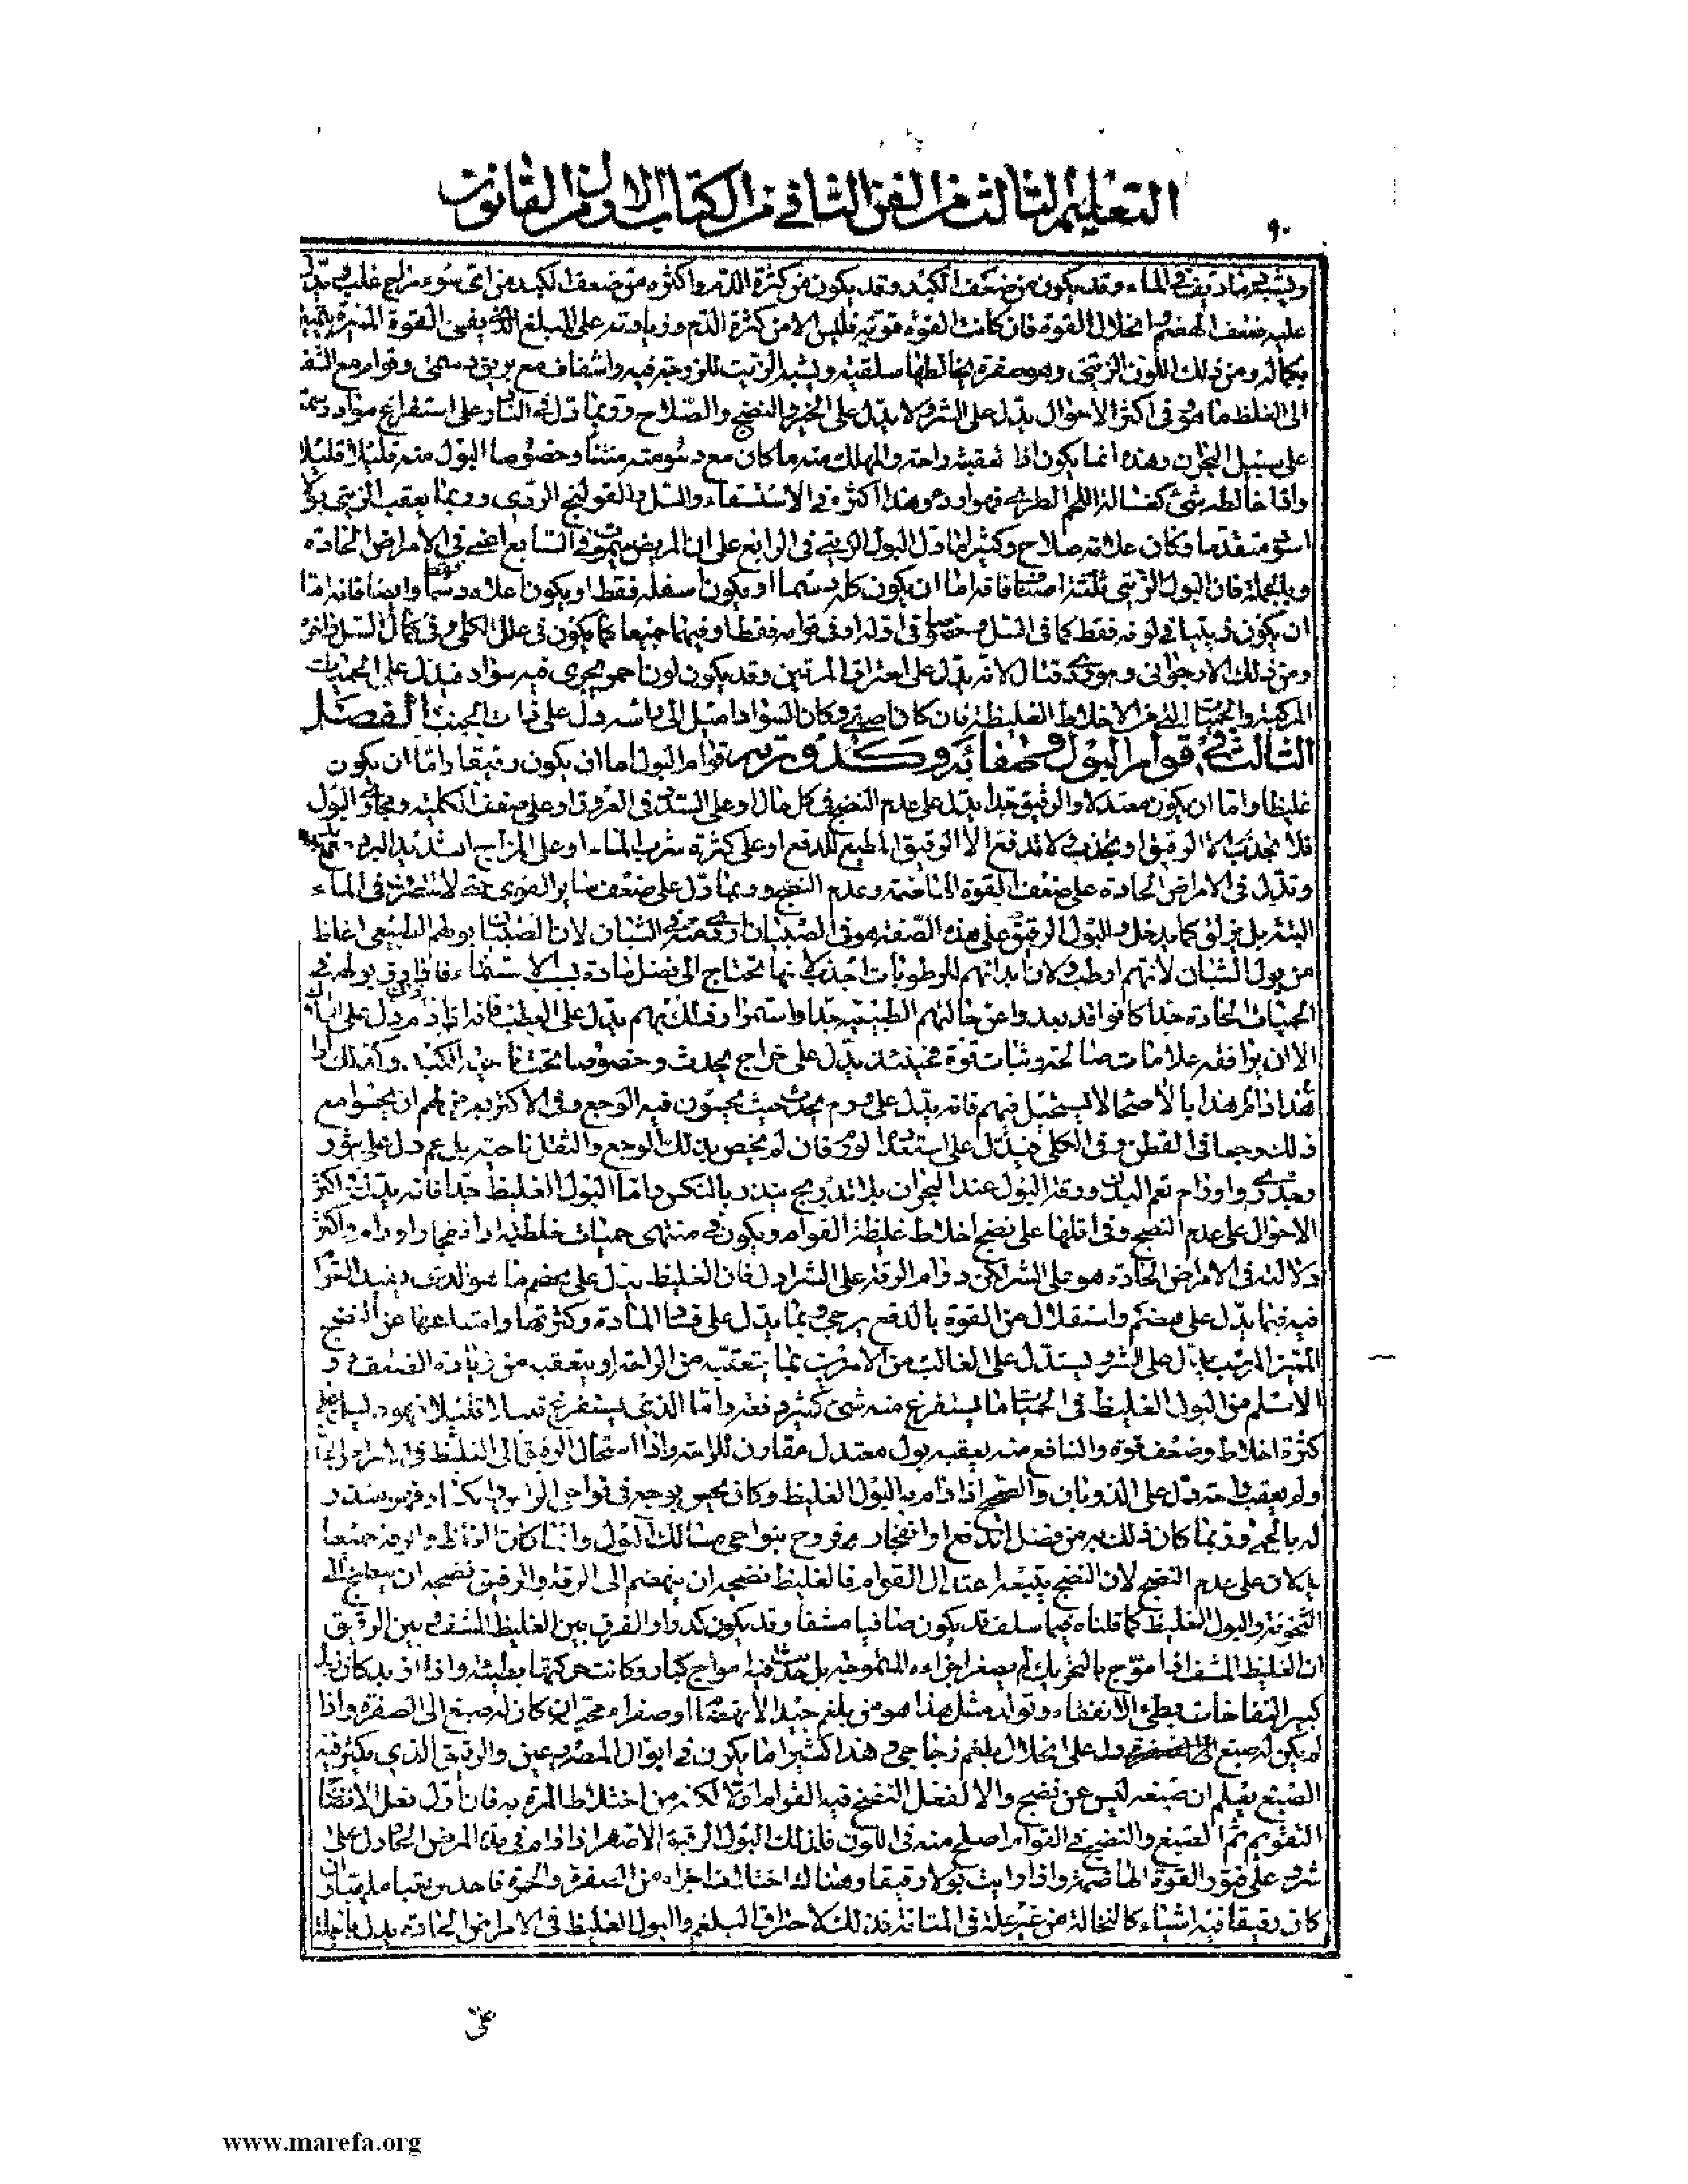 التعليم الثالث من الفن الثاني من الكتاب الاول من القانون
٩٠
ويشبه ماء ديف في الماء وقد يكون من ضعف الكبد وقد يكون من كثرة الدم واكثره من ضعف الكبد من اي سوء مزاج غلب ويدل
عليه ضعف الهضم وانحلال القوة فان كانت القوة قوية فليس الا من كثرة الدم وزيادته على المبلغ الذي يفي القوة المميزة بتمييزه
بكماله ومن ذلك اللون الزيتي وهو صفرة يخالطها سلقية ويشبه الزيت للزوجة فيه واشفاف مع بريق دسمي وقوام مع الشف
الى الغلظ ما هو في اكثر الاحوال يدل على الشر ولا يدل على الخير والنضج والصلاح وربما دل في النادر على استفراغ مواد دسمة
على سبيل البحران وهذه انما يكون اذا تعقبته راحة والمهلك منه ما كان مع دسومته منتنا وخصوصا البول منه قليلا قليلا
واذا خالطه شئ كغسالة اللحم الطري فهو اردء وهذا اكثره في الاستسقاء والسل والقولنج الردي وربما يعقب الزيتي بولا
اسود متقدما وكان علامة صلاح وكثيرا ما دل البول الزيتي في الرابع على ان المريض سيموت في السابع اعني في الامراض الحادة
وبالجملة فان البول الزيتي ثلثة اصناف فانه اما ان يكون كله دسما او يكون اسفله فقط او يكون اعلاه دسما فقط وايضا فانه اما
ان يكون زيتيا في لونه فقط كما في السل وخصوصا في اوله او في قوامه فقط او فيهما جميعا كما يكون في علل الكلى وفي كمال السل واخره
ومن ذلك الارجواني وهو ردي قتال لانه يدل على احتراق المرتين وقد يكون لونا احمر يجري فيه سواد فيدل على الحميات
المركبة والحميات التي من الاخلاط الغليظة فان كان اصفى وكان السواد اميل الى راسه دل على ذات الجنب الفصل
الثالث في قوام البول وصفائه وكدورته قوام البول اما ان يكون رقيقا واما ان يكون
غليظا واما ان يكون معتدلا والرقيق جدا يدل على عدم النضج في كل حال او على السدد في العروق او على ضعف الكلية ومجاري البول
فلا تجذب الا الرقيق او تجذب ولا تدفع الا الرقيق المطيع للدفع او على كثرة شرب الماء او على المزاج الشديد البرد
وتدل في الامراض الحادة على ضعف القوة الهاضمة وعدم النضج وربما دل على ضعف سائر القوى حتى لا تتصرف في الماء
البتة بل يزلق كما يدخل والبول الرقيق على هذه الصفة هو في الصبيان اردى منه في الشبان لان الصبيان بولهم الطبيعي اغلظ
من بول الشبان لانهم ارطب ولان ابدانهم للرطوبات اجذب لانها تحتاج الى فضل مادة بسبب الاستنماء فاذا رق بولهم في
الحميات الحادة جدا كانوا قد بعدوا عن حالتهم الطبيعية جدا واستمرار ذلك بهم يدل على العطب فانه اذا دام دل على الهلاك
الا ان توافقه علامات صالحة وثبات قوة فحينئذ يدل على خراج يحدث وخصوصا تحت ناحية الكبد وكذلك اذا
دام هذا بالاصحاء لا يستحيل فيهم فانه يدل على ورم يحدث حيث يحسون فيه الوجع وفي الاكثر يعرض لهم ان يحسوا مع
ذلك وجعا في القطن وفي الكلى فيدل على استعداد لورم فان لم يخص بذلك الوجع والثقل ناحية بل عم دل على بثور
وجدري واورام تعم البدن ورقة البول عند البحران بلا تدريج ينذر بالنكس واما البول الغليظ جدا فانه يدل في اكثر
الاحوال على عدم النضج وفي اقلها على نضج اخلاط غليظة القوام ويكون في منتهى حميات خلطية او انفجار اورام واكثر
دلالته في الامراض الحادة هو على الشر لكن دوام الرقة على الشر ادل فان الغليظ يدل على هضم ما
فيه فربما يدل على هضم واستقلال من القوة بالدفع وربما يدل على فساد المادة وكثرتها وامتناعها عن النضج
المميز المرسب فيدل على الشر ويستدل على الغالب من الامرين بما يتعقبه من الراحة او يتعقبه من زيادة الضعف و
الاسلم من البول الغليظ في الحميات ما يستفرغ منه شئ كثير دفعة واما الذي يستفرغ قليلا قليلا فهو دليل على
كثرة اخلاط وضعف قوة والنافع منه يعقبه بول معتدل مقارن للراحة واذا استحال الرقيق الى الغليظ في الامراض الحادة
ولم يعقب راحة دل على الذوبان والصحيح اذا دام به البول الغليظ وكان يحس بوجع في نواحي الراس وانكسار فهو ينذر
له بالحمى وربما كان ذلك به من فضل اندفع او انفجار قروح بنواحي مسالك البول وانما كان الغلظ والرقة جميعا
يدلان على عدم النضج لان النضج يتبعه اعتدال القوام فالغليظ نضجه ان ينهضم الى الرقة والرقيق نضجه ان ينطبخ الى
الثخونة والبول الغليظ كما قلناه فيما سلف قد يكون صافيا مشفا وقد يكون كدرا والفرق بين الغليظ المشف وبين الرقيق
ان الغليظ المشف اذا موج بالتحريك لم يصغر اجزاءه المتموجة بل حدثت فيه امواج كبار وكانت حركتها بطيئة واذا ازبد كان زبده
كبير النفاخات بطئ الانفقاء وتولد مثل هذا هو من بلغم جيد الانهضام او صفراء محية ان كان له صبغ الى الصفرة واذا
لم يكن له صبغ دل على انحلال بلغم زجاجي وهذا كثيرا ما يكون في ابوال المصروعين والرقيق الذي يكثر فيه
الصبغ يعلم ان صبغه ليس عن نضج والا لفعل النضج فيه القوام اولا لكنه من اختلاط المرة به فان اول فعل الانضاج
التقويم ثم الصبغ والنضج في القوام اصلح منه في اللون فلذلك البول الرقيق الاصفر اذا دام في مدة المرض الحاد دل على
شر وعلى فتور القوة الهاضمة واذا رايت بولا رقيقا وهناك اختلاف اجزاء من الصفرة والحمرة فاحدس تعبا ملهبا وان
كان رقيقا فيه اشياء كالنخالة من غير علة في المثانة فذلك لاحتراق البلغم والبول الغليظ في الامراض الحادة يدل بالجملة
على
www.marefa.org